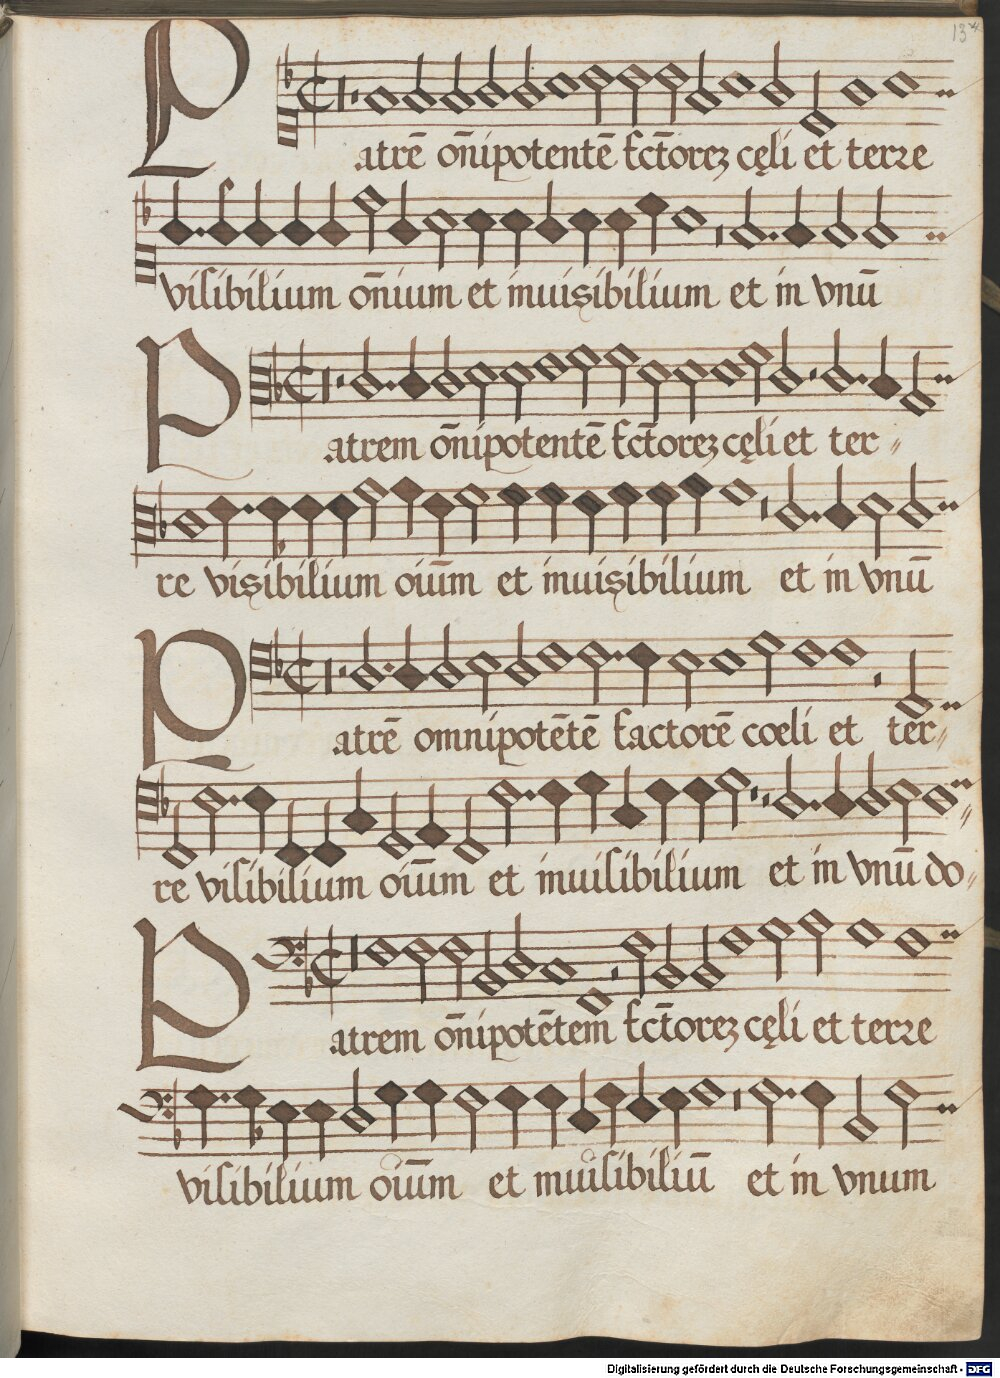 134
Patrē oñipotentē fctorez cęli et terre
visibilium oñium et inuisibilium et in vnū
Patrem oñipotentē fctorez cęli et ter〃
re visibilium oiūm et inuisibilium et in vnū
Patrē omnipotētē factorē coeli et ter〃
re visibilium oiūm et inuisibilium et in vnū do〃
Patrem oñipotētem fctorez cęli et terre
visibilium oiūm et inuisibiliū et in vnum
Digitalisierung gefördert durch die Deutsche Forschungsgemeinschaft - DFG